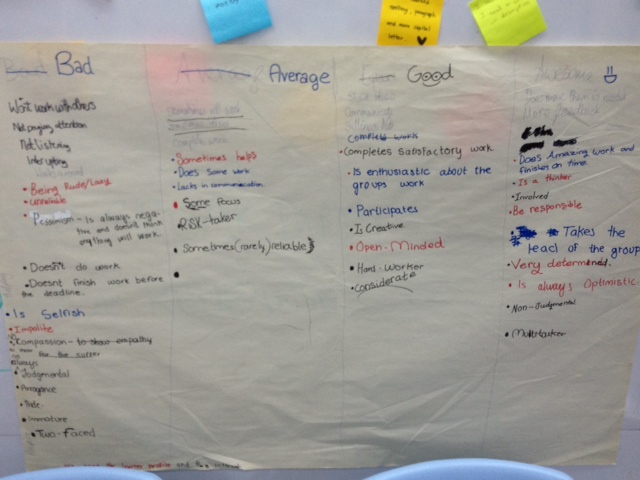 spelling, paragraph
and more capital
letter
Bad
Won't work with others
Not paying attention
Not listening
Interupting
• Being Rude/Lazy
• unreliable
• Pessimism - Is always nega-
tive and doesn't think
anything will work.
• Doesn't do work
• Doesnt finish work before
the deadline.
• Is Selfish
• Impolite
• Compassion - to show empathy
always
• Judgmental
• Arrogance
• Rude
• Immature
• Two-Faced
Average
• Sometimes helps
• Does some work
• Lacks in communication
• Some focus
RISK-taker
• Sometimes (rarely) reliable
Good
complete work
• Completes satisfactory work
• Is enthusiastic about the
groups work
• Participates
• Is Creative
• Open-Minded
• Hard-Worker
• Considerate
Awesome
• Does Amazing work and
finishes on time.
• Is a thinker
• Involved
• Be responsible
Takes the
lead of the group
• Very determined.
• Is always Optimistic
• Non-Judgmental
• Multitasker